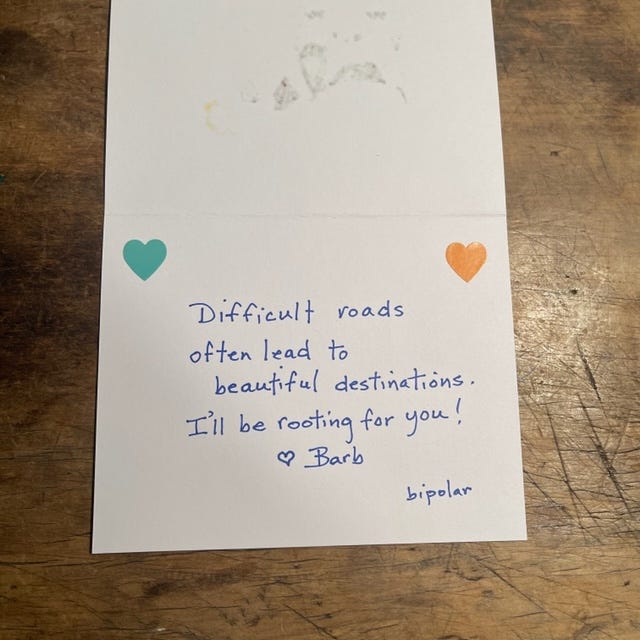 Difficult roads
often lead to
beautiful destinations.
I'll be rooting for you!
♡ Barb
bipolar